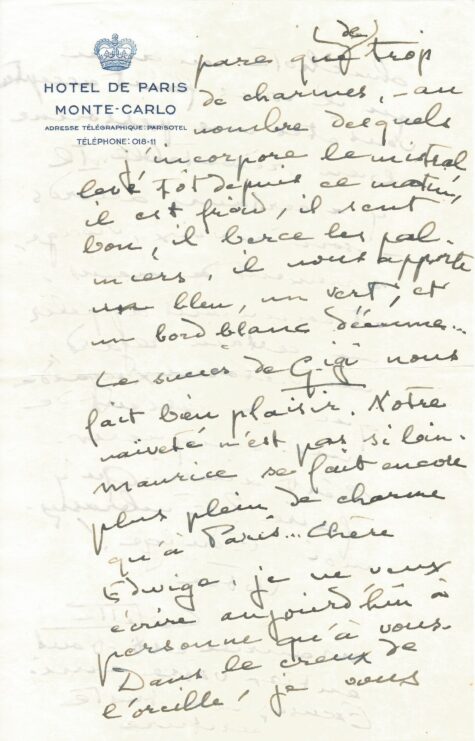 HOTEL DE PARIS
MONTE-CARLO
ADRESSE TÉLÉGRAPHIQUE: PARISOTEL
TÉLÉPHONE: 018-11
(de)
pare que trop
de charmes, - au
nombre desquels
j'incorpore le mistral
levé tôt depuis ce matin,
il est froid, il sent
bon, il berce les pal-
miers, il nous apporte
un bleu, un vert, et
un bord blanc d'écume...
Le succès de Gigi nous
fait bien plaisir. Notre
naïveté n'est pas si loin.
Maurice se fait encore
plus plein de charme
qu'à Paris... Chère
Edwige, je ne veux
écrire aujourd'hui à
personne qu'à vous.
Dans le creux de
l'oreille, je vous